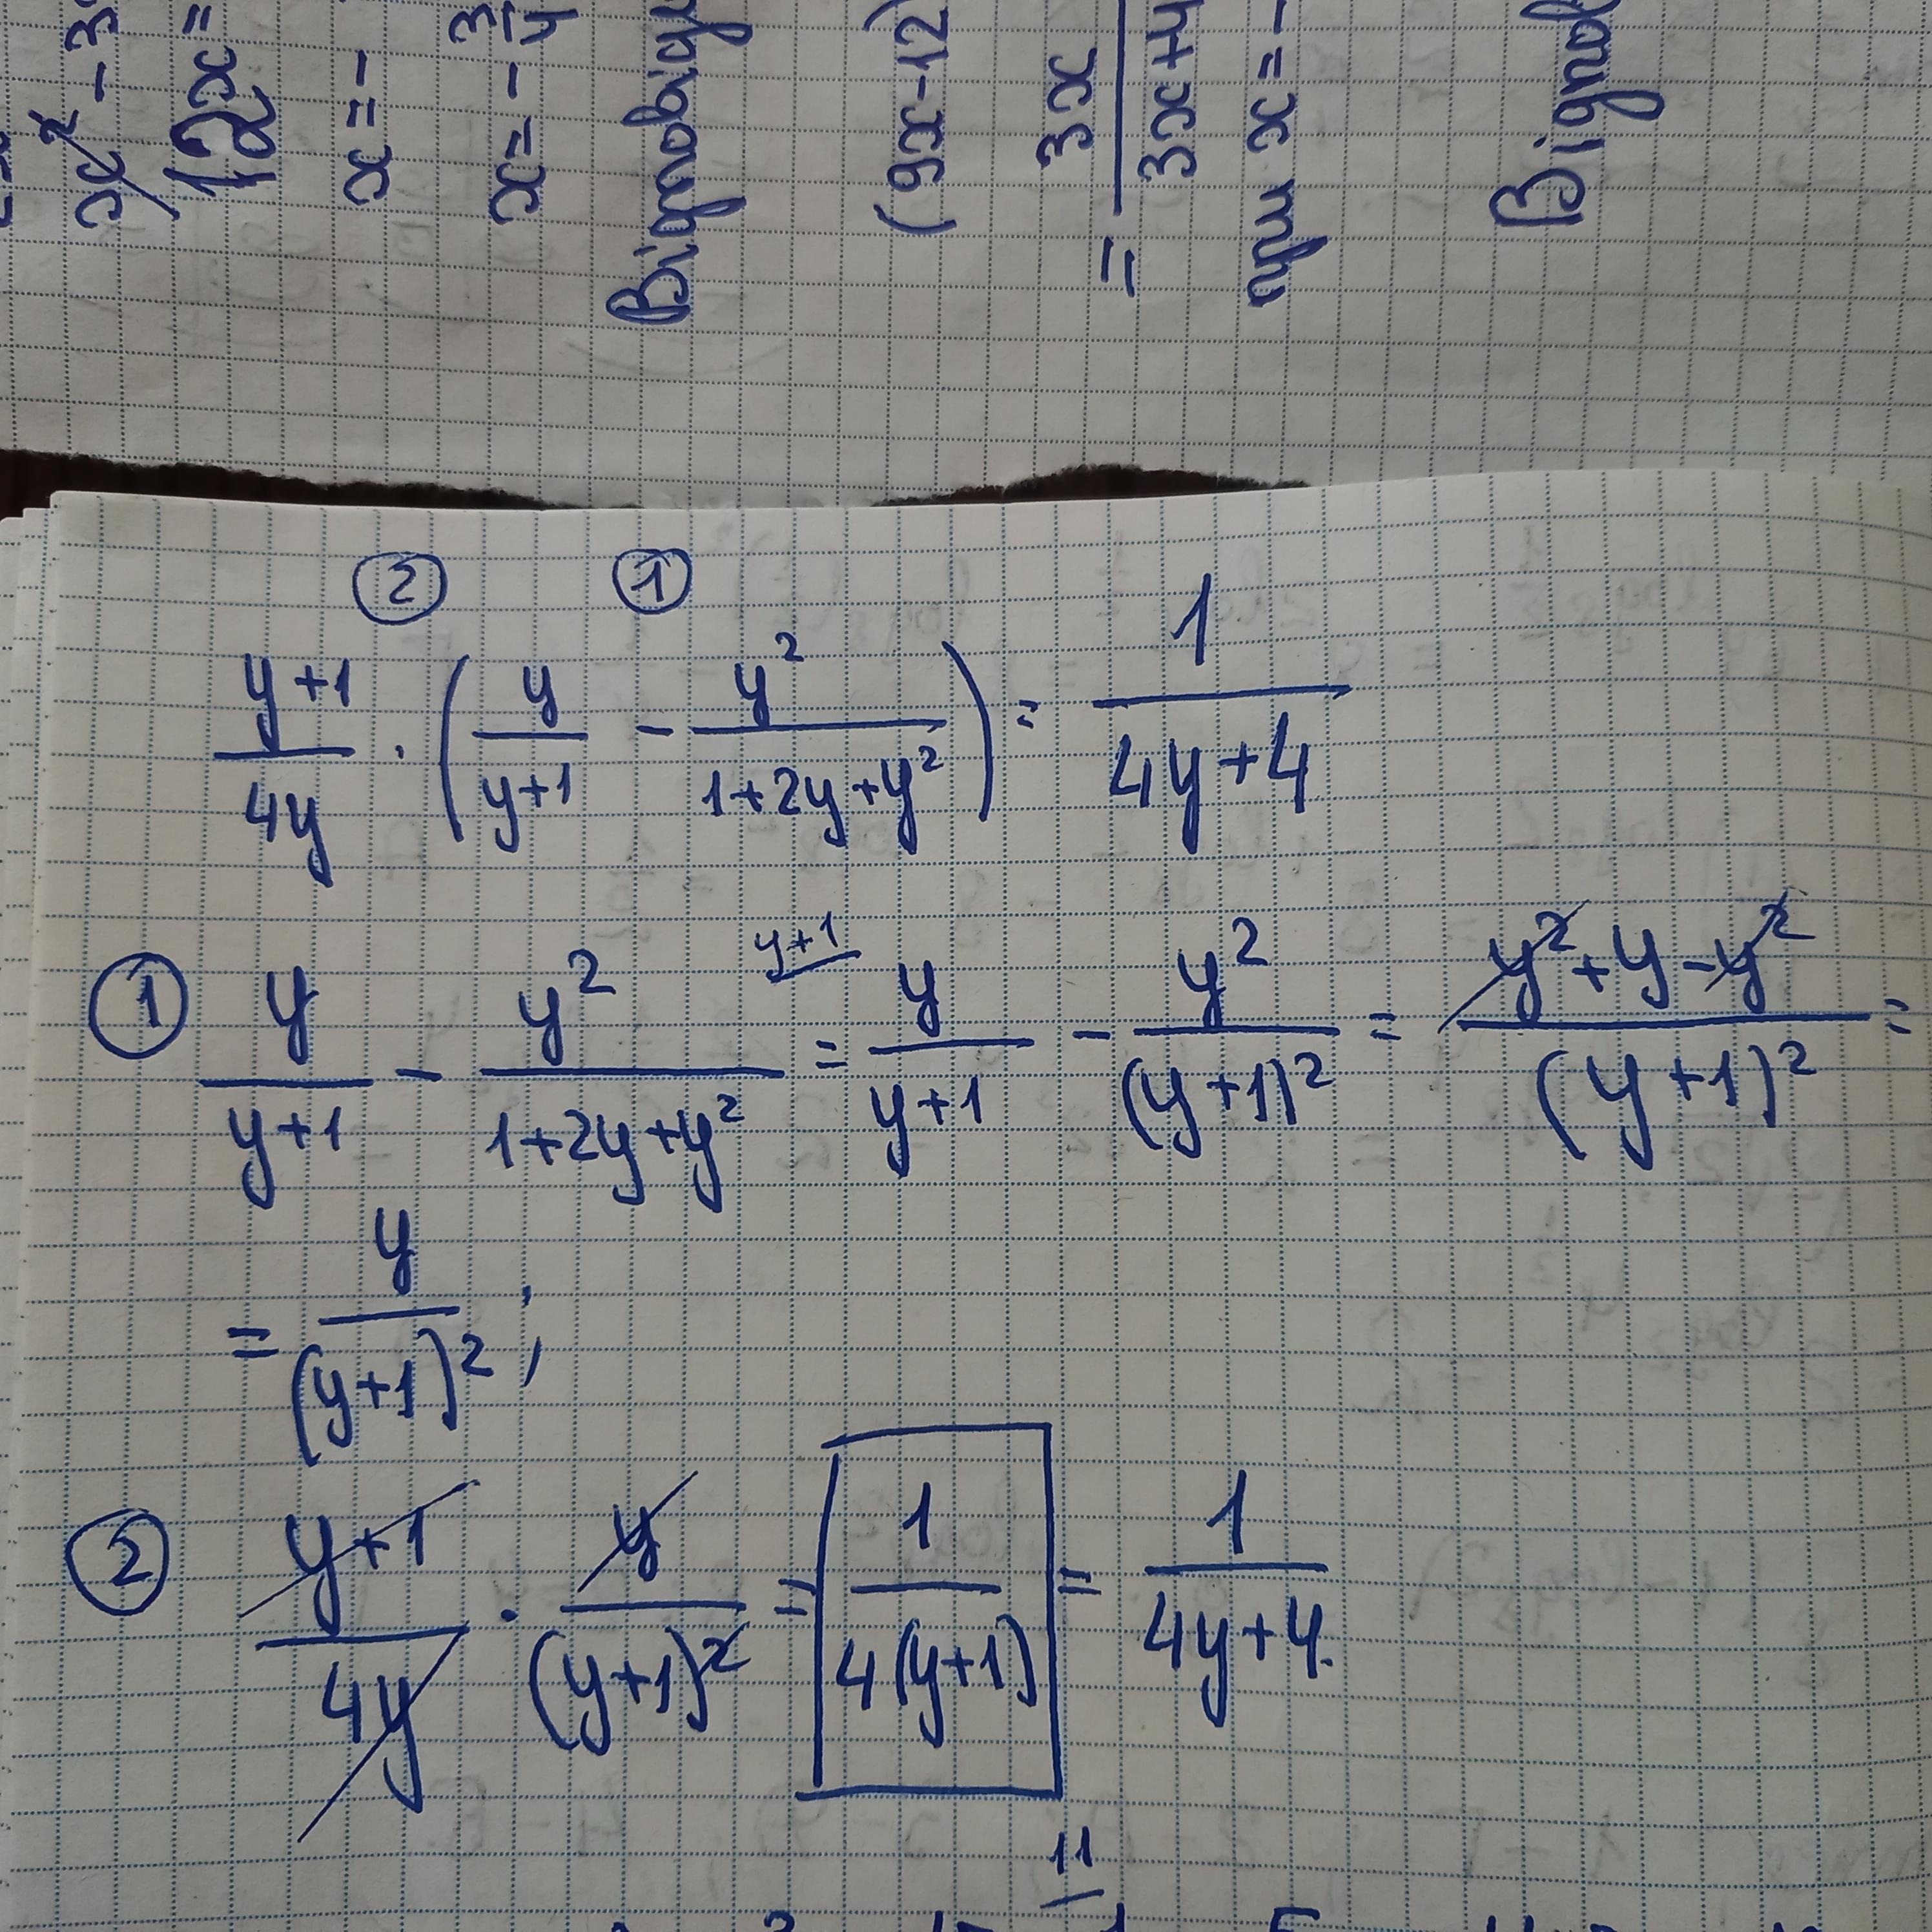 x² - 3
12x =
x = -
x = - 3/4
(9x-12)
= 3x/(3x+4
при x = -
② ①
(y+1)/(4y) · (y/(y+1) - y²/(1+2y+y²)) = 1/(4y+4)
① y/(y+1) - y²/(1+2y+y²) = y/(y+1) (y+1) - y²/(y+1)² = (y²+y-y²)/(y+1)² =
= y/(y+1)² ;
② (y+1)/(4y) · y/(y+1)² = 1/(4(y+1)) = 1/(4y+4)
11